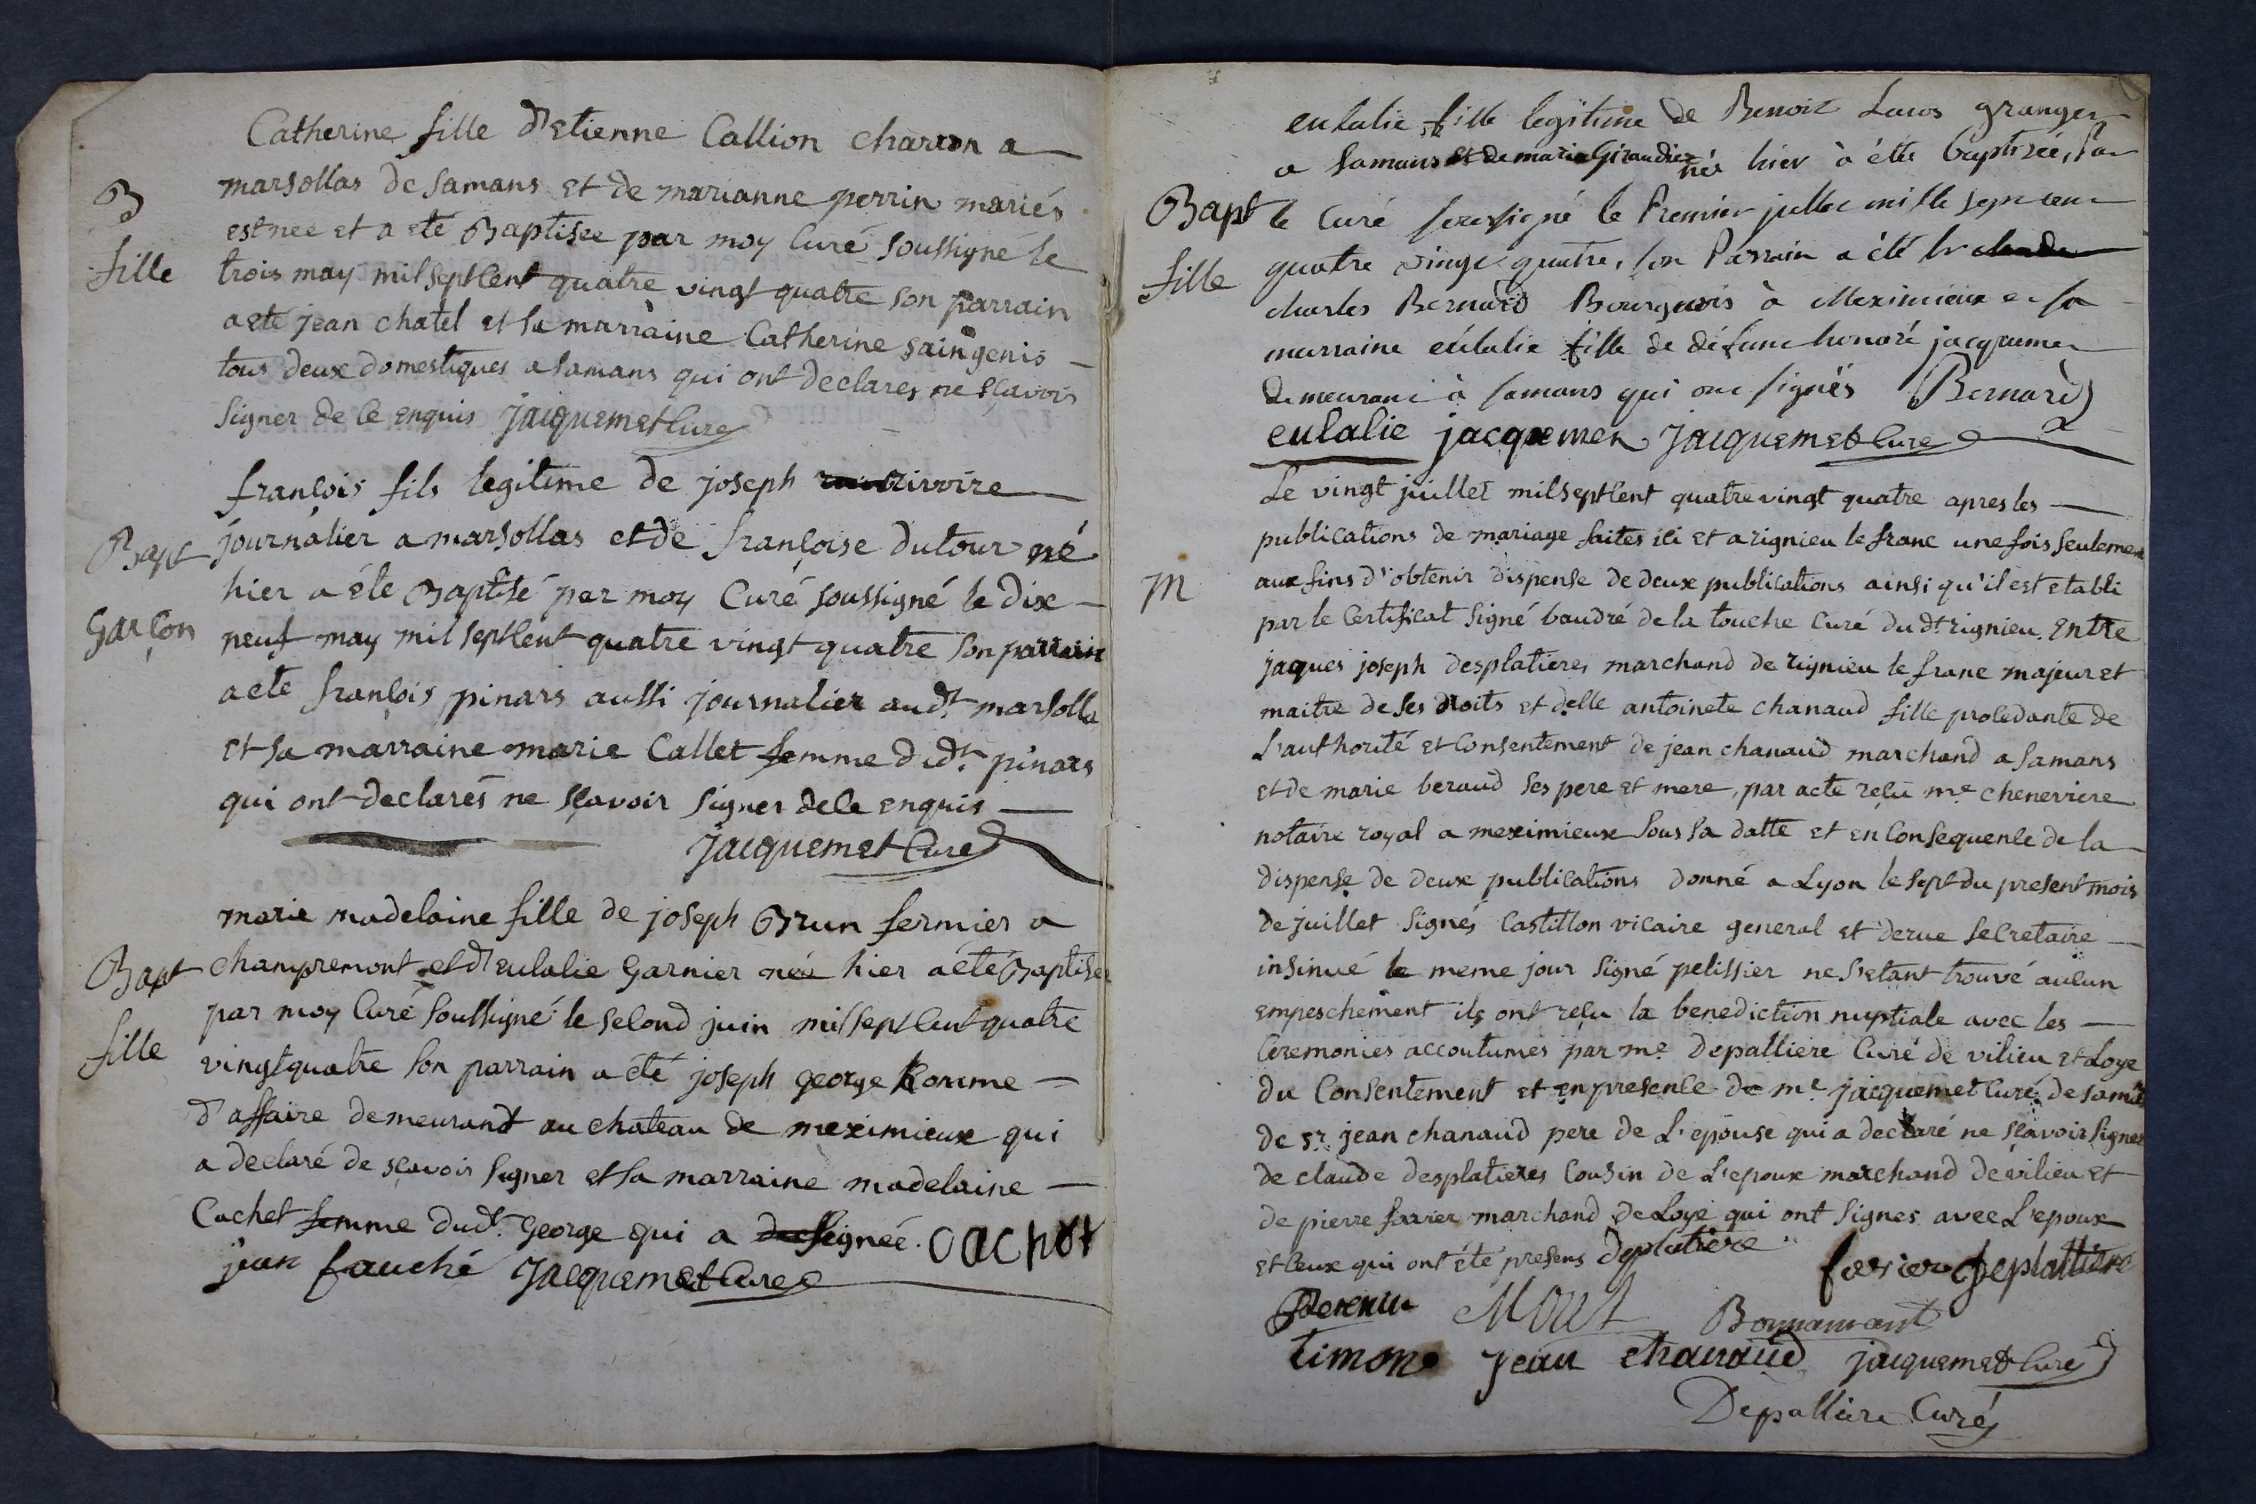 Catherine fille d'Etienne Callion charron a
marsollas de samans et de marianne perrin mariés
B
est née et a ete Baptisee par moy Curé soussigné le
fille
trois may mil sept cent quatre vingt quatre son parrain
a ete jean chatel et sa marraine Catherine saingenis
tous deux domestiques a samans qui ont declares ne sçavoir
signer de ce enquis jacquemet Curé
françois fils legitime de joseph rivoire
Bapt
journalier a marsollas et de françoise dutour né
hier a éte Baptisé par moy Curé soussigné le dix
Garçon
neuf may mil sept cent quatre vingt quatre son parrain
a ete françois pinars aussi journalier aud.t marsolla
et sa marraine marie Callet femme dud.t pinars
qui ont declarés ne sçavoir signer de ce enquis
jacquemet Curé
marie madelaine fille de joseph Brun fermier a
Bapt
champremont et d'eulalie Garnier née hier a été Baptisée
par moy Curé soussigné le second juin mil sept cent quatre
fille
vingt quatre son parrain a été joseph george homme
d'affaire demeurant au chateau de meximieux qui
a declaré de sçavoir signer et sa marraine madelaine
Cachet femme dud.t George qui a signée. cachet
jean fauché jacquemet Curé
eulalie fille legitime de Benoit Laurs granger
a samans et de marie Giraudier née hier à été baptisée, par
Bapt
le Curé soussigné le Premier jullet mille sept cent
fille
quatre vingt quatre, son Parrain a été sr
charles Bernard Bourgeois à Meximieux et sa
marraine eulalie fille de défunt honoré jacquemet
demeurant à samans qui ont signés Bernard
eulalie jacquemet jacquemet Curé
Le vingt juillet mil sept cent quatre vingt quatre apres les
publications de mariage faites ici et a rignieu le franc une fois seulement
M
aux fins d'obtenir dispense de deux publications ainsi qu'il est etabli
par le Certificat signé baudré de la touche Curé dud.t rignieu. Entre
jaques joseph desplatieres marchand de rignieu le franc majeur et
maitre de ses droits et d.elle antoinete chanaud fille procedante de
L'authorité et Consentement de jean chanaud marchand a samans
et de marie beraud ses pere et mere, par acte reçu m.e chenevriere
notaire royal a meximieux sous sa datte et en Consequence de la
dispense de deux publications donné a Lyon le sept du present mois
de juillet signés Castillon vicaire general et derue secretaire
insinué le meme jour signé pelissier ne s'etant trouvé aucun
empeschement ils ont reçu la benediction nuptiale avec les
Ceremonies accoutumés par m.e Depalliere Curé de vilieu et Loye
du Consentement et en presence de m.e jacquemet Curé de samans
de s.r jean chanaud pere de L'epouse qui a declaré ne sçavoir signer
de claude desplatieres Cousin de L'epoux marchand de vilieu et
de pierre farrier marchand de Loye qui ont signes avec L'epoux
et Ceux qui ont été presens deplatiere ferrier deplattiere
Mout Bonnamant
timone jean chanaud jacquemet Curé
Depalliere Curé